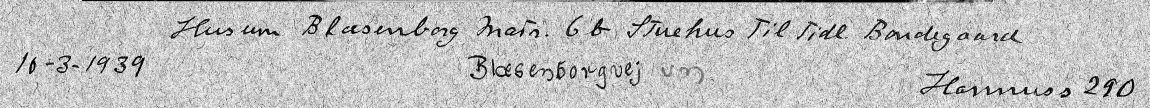 Husum Blasenborg Matr. 6 b Stuehus Til Tidl Bondegaard
10-3-1939
Blæsenborgvej
290